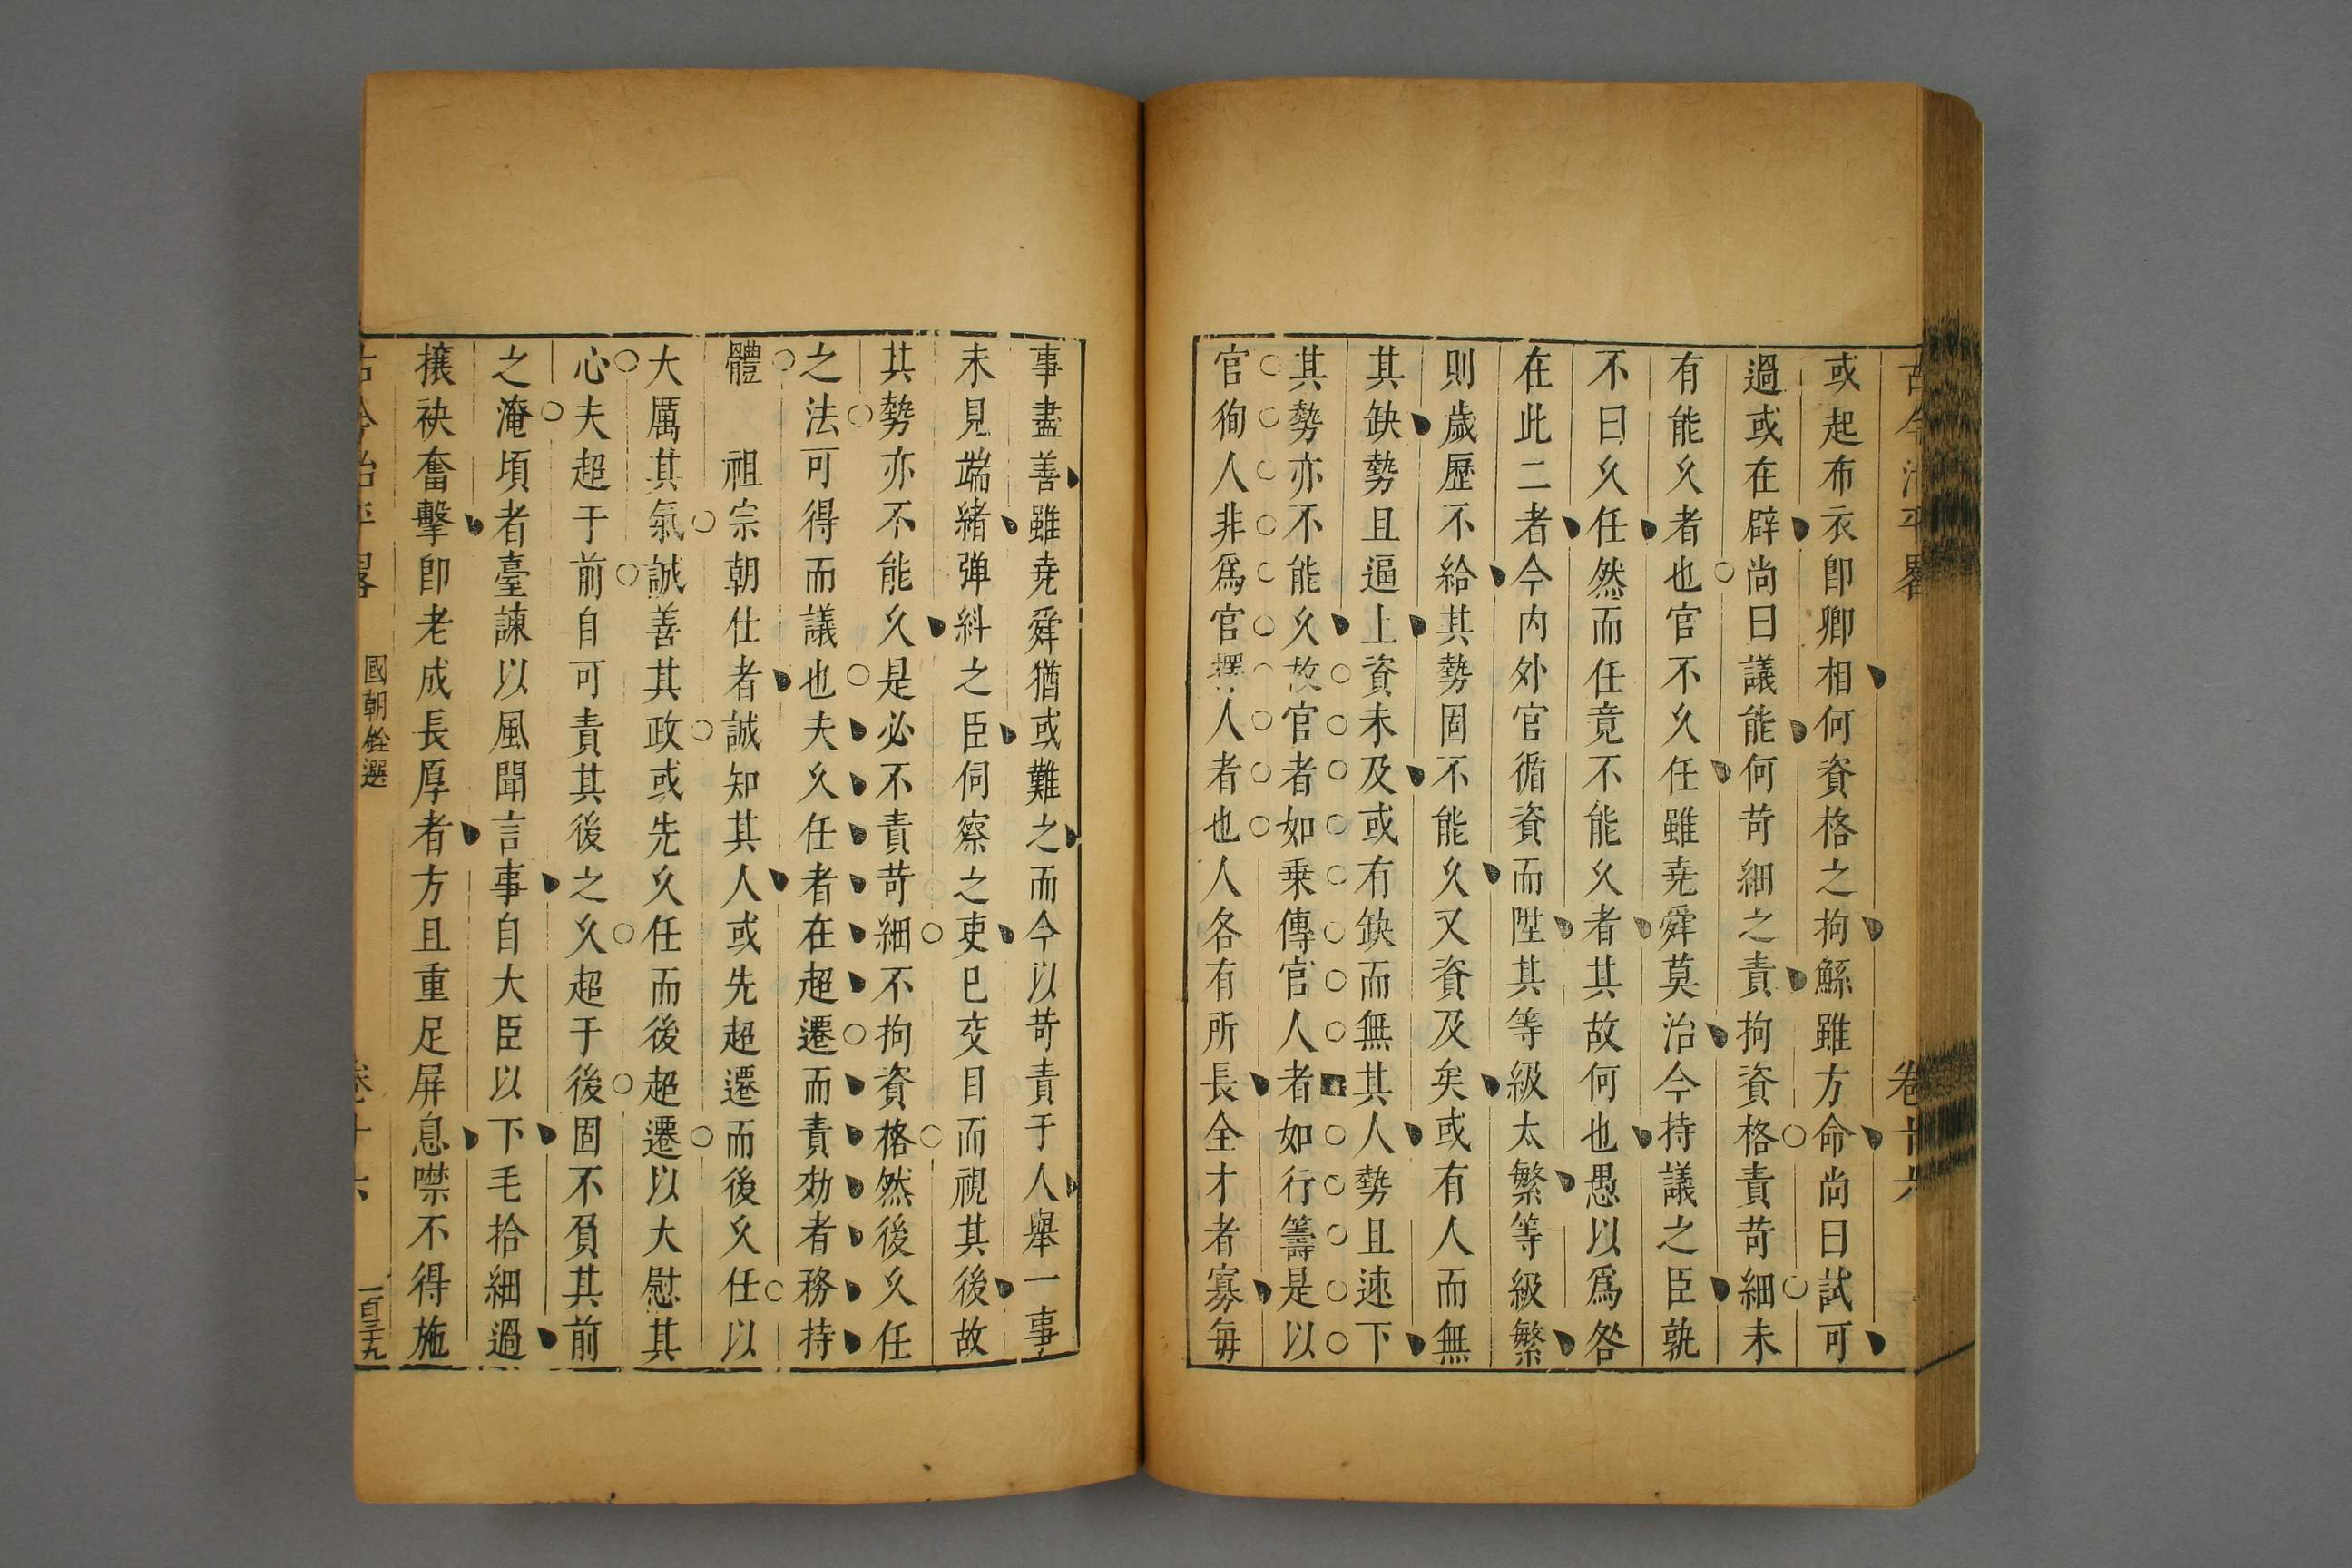 古今治平畧 卷十六
或起布衣卽卿相何資格之拘鯀雖方命尚曰試可
過或在辟尚曰議能何苛細之責拘資格責苛細未
有能久者也官不久任雖堯舜莫治今持議之臣孰
不曰久任然而任竟不能久者其故何也愚以爲咎
在此二者今内外官循資而陞其等級太繁等級繁
則歲歷不給其勢固不能久又資及矣或有人而無
其缺勢且逼上資未及或有缺而無其人勢且速下
其勢亦不能久故官者如乗傳官人者如行籌是以
官狥人非爲官擇人者也人各有所長全才者寡毎
事盡善雖堯舜猶或難之而今以苛責于人舉一事
未見端緒弹紏之臣伺察之吏已交目而視其後故
其勢亦不能久是必不責苛細不拘資格然後久任
之法可得而議也夫久任者在超遷而責効者務持
體 祖宗朝仕者誠知其人或先超遷而後久任以
大厲其氣誠善其政或先久任而後超遷以大慰其
心夫超于前自可責其後之久超于後固不負其前
之淹頃者臺諫以風聞言事自大臣以下毛拾細過
攘袂奮擊卽老成長厚者方且重足屏息噤不得施
古今治平畧 國朝銓選 卷十六 一百三十九